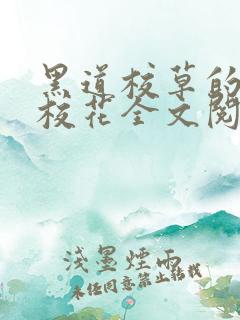 黑道校草的
校花全文阅
浅墨煙雨
未经同意禁止转载